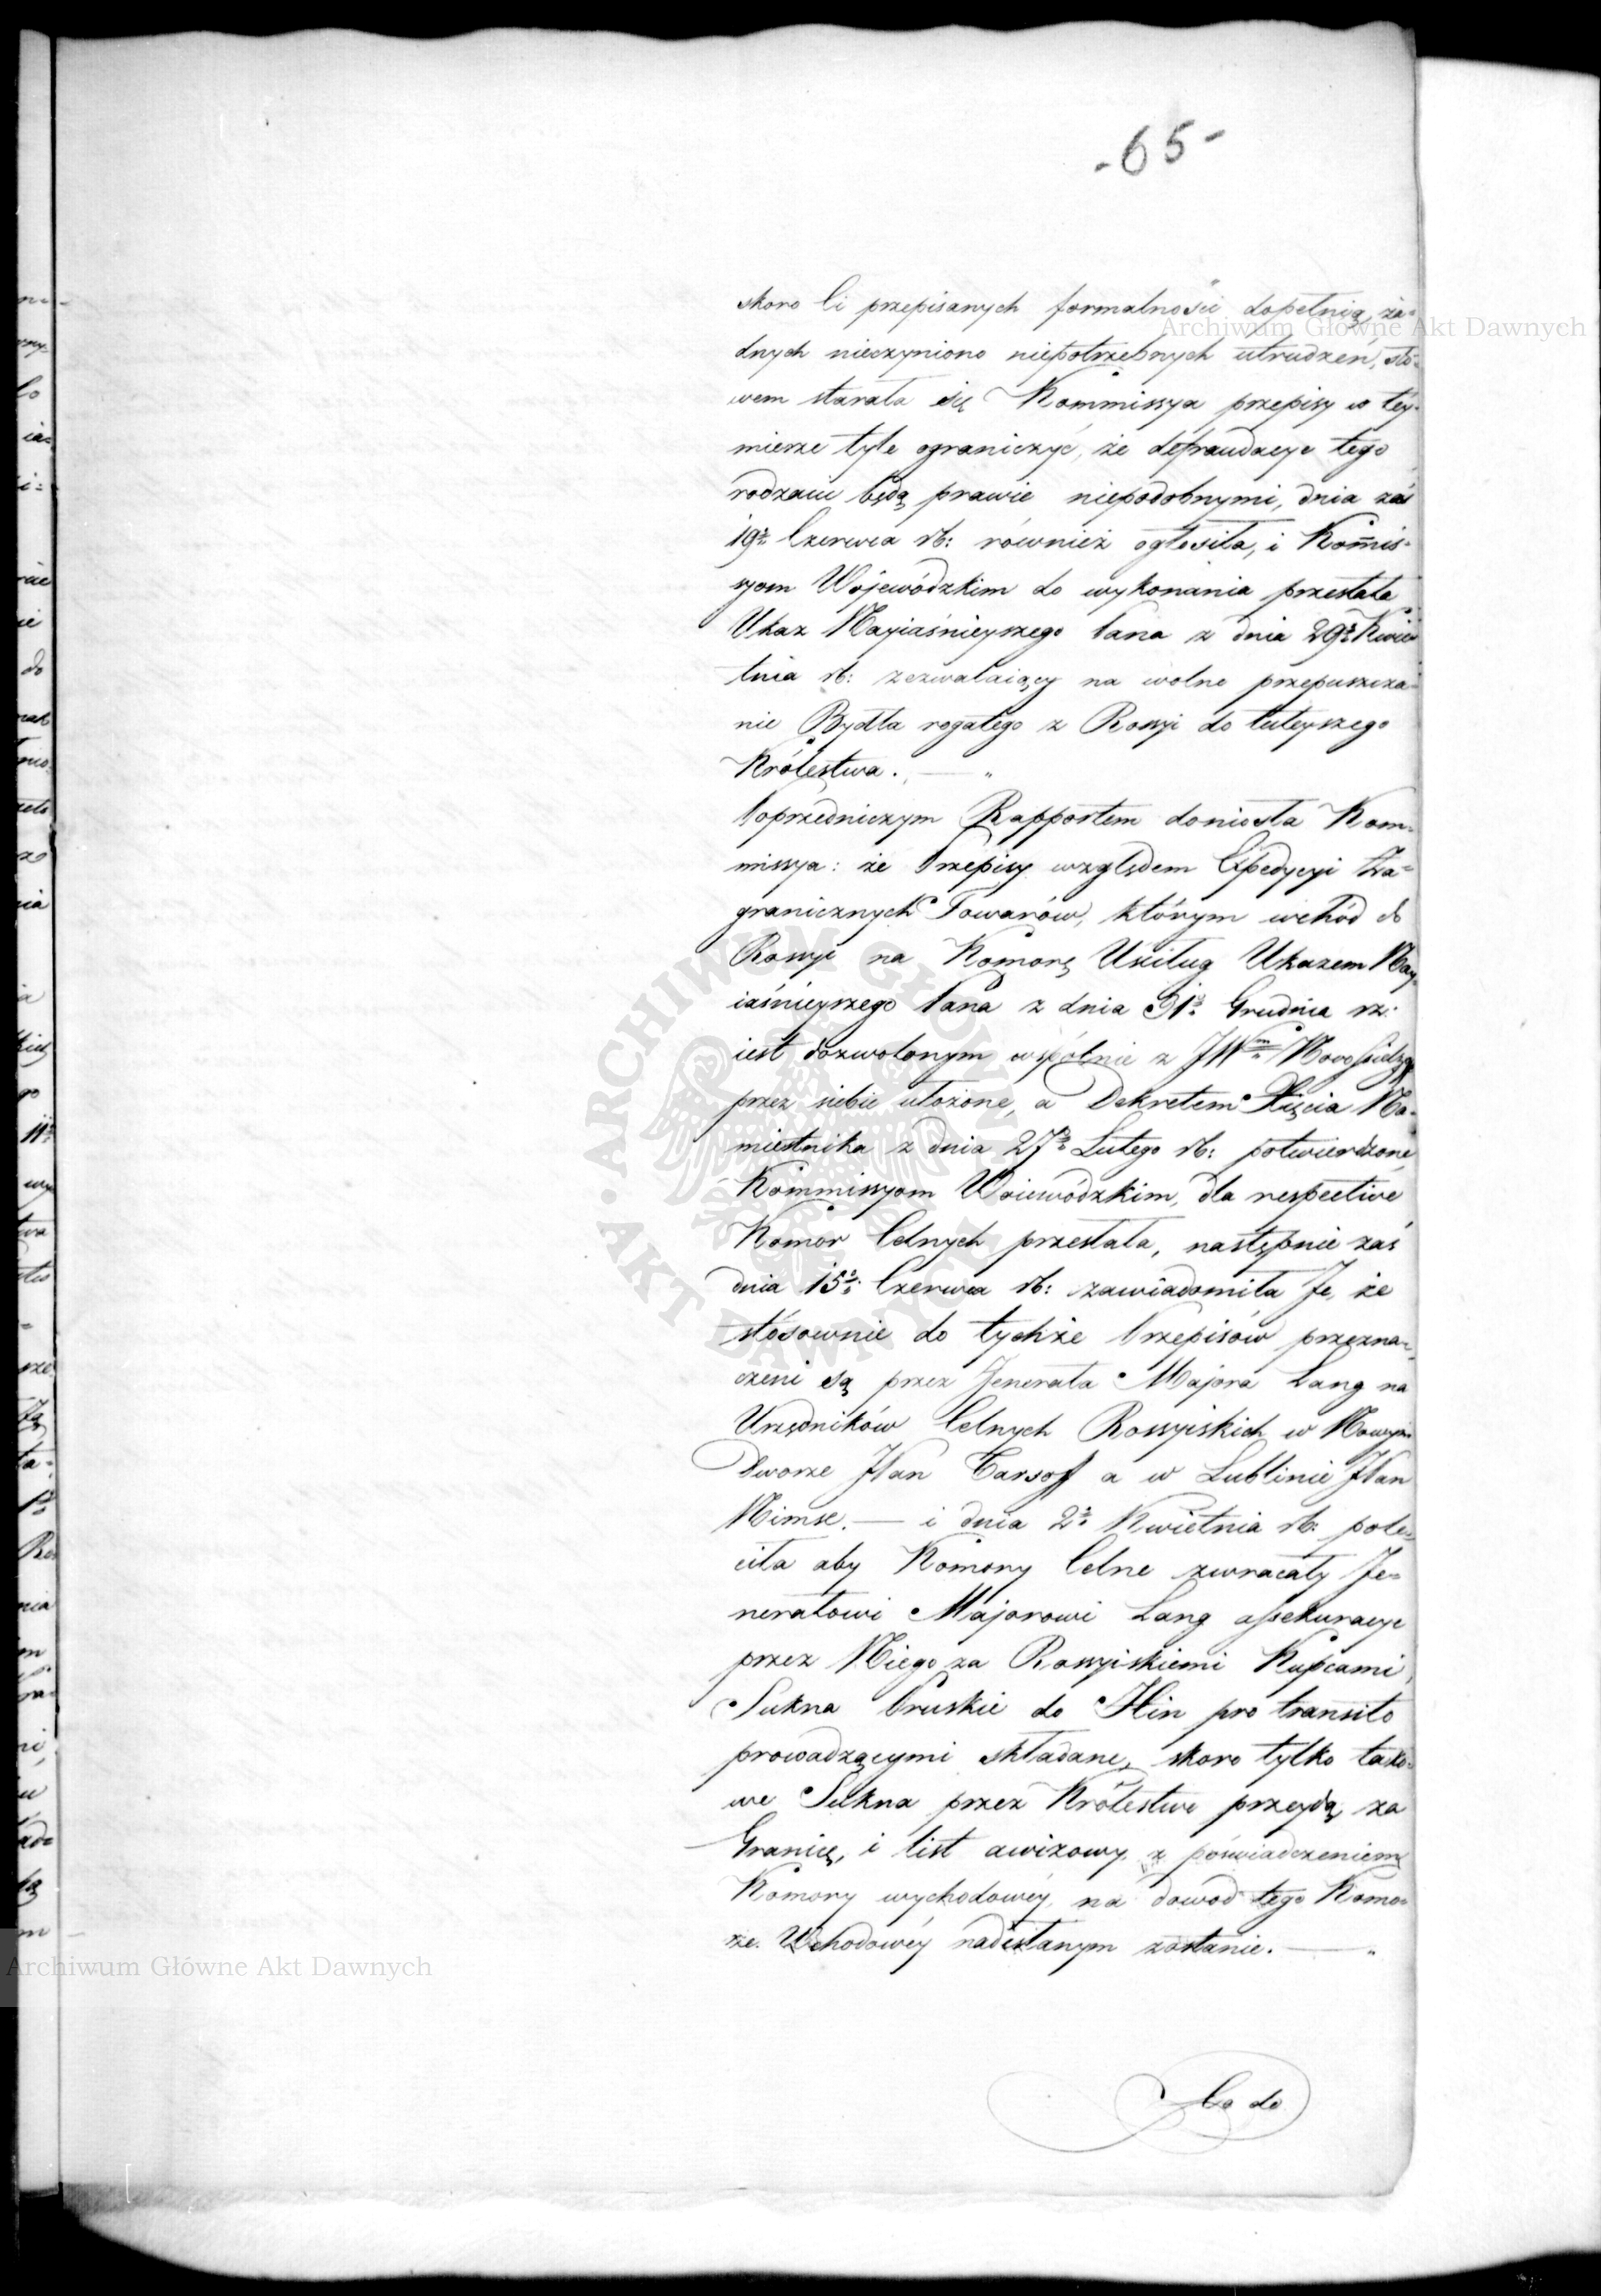 -65-
skoro Ci przepisanych formalności dopełnią, ża-
dnych nieczyniono niepotrzebnych utrudzeń, sło-
wem starała się Kommissya przepisy w tey
mierze tyle ograniczyć, że defraudacye tego
rodzaiu będą prawie niepodobnymi, dnia zaś
19º Czerwca rb: również ogłosiła, i Kom̄is-
syom Wojewódzkim do wykonania przesłała
Ukaz Nayiaśnieyszego Pana z dnia 29º Kwie-
tnia rb: zezwalaiący na wolne przepuszcza-
nie Bydła rogatego z Rossyi do tuteyszego
Królestwa. —
Poprzedniczym Rapportem doniosła Kom-
missya: że Przepisy względem Expedycyi Za-
granicznych Towarów, którym wchód do
Rossyi na Komorę Uściług Ukazem Nay-
iaśnieyszego Pana z dnia 31º Grudnia rz:
iest dozwolonym wspólnie z JWm
przez siebie ułożone, a Dekretem Xięcia Na-
miestnika z dnia 27º Lutego rb: potwierdzone
Kommissyom Woiewódzkim, dla respective
Komor Celnych przesłała, następnie zaś
dnia 15º Czerwca rb: zawiadomiła Je, że
stósownie do tychże Przepisów przezna-
czeni są przez Jenerała Majora Lang na
Urzędników Celnych Rossyiskich w Nowym
Dworze JPan Carsoff a w Lublinie JPan
Nimse. — i dnia 2º Kwietnia rb: pole-
ciła aby Komory Celne zwracały Je-
nerałowi Majorowi Lang assekuracye
przez Niego za Rossyiskiemi Kupcami,
Sukna Pruskie do Hin pro transito
prowadzącymi składane, skoro tylko tako-
we Sukna przez Królestwo przeydą za
Granicę, i list awizowy z poświadczeniem
Komory wychodowéy, na dowod tego Komo-
rze Wchodowéy nadesłanym zostanie. —
Co do
Archiwum Główne Akt Dawnych
Archiwum Główne Akt Dawnych
ARCHIWUM GŁÓWNE AKT DAWNYCH